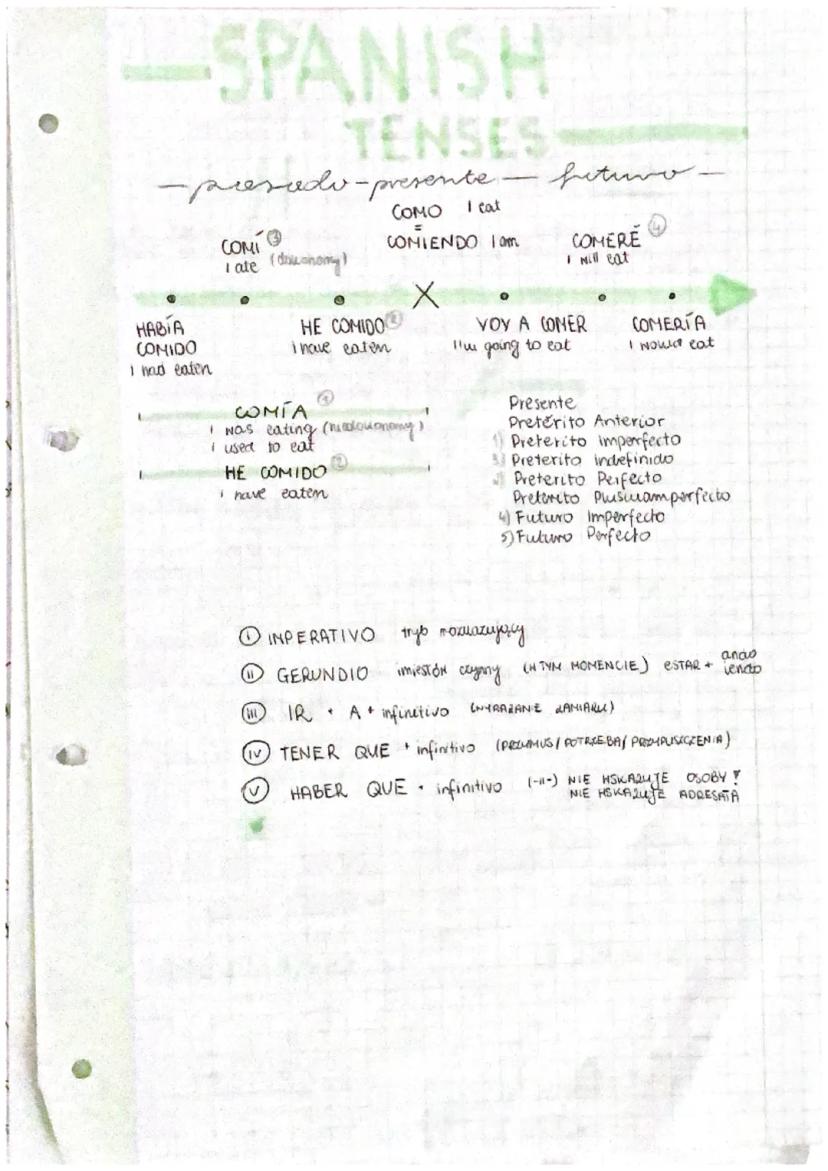 SPANISH
TENSES
— pasado - presente — futuro —
COMO I eat
=
COMÍ ③ COMIENDO I am COMERÉ ④
I ate (dokonany) I will eat
HABÍA HE COMIDO ② VOY A COMER COMERÍA
COMIDO I have eaten I'm going to eat I would eat
I had eaten
COMÍA ①
I was eating (niedokonany)
I used to eat
HE COMIDO ②
I have eaten
Presente
Pretérito Anterior
1) Preterito imperfecto
3) Preterito indefinido
2) Preterito Perfecto
Preterito Pluscuamperfecto
4) Futuro Imperfecto
5) Futuro Perfecto
I INPERATIVO tryb rozkazujący
II GERUNDIO imiesłów czynny (W TYM MOMENCIE) ESTAR + ando
iendo
III IR + A + infinitivo (WYRAŻANIE ZAMIARU)
IV TENER QUE + infinitivo (PRZYMUS/POTRZEBA/PRZYPUSZCZENIA)
V HABER QUE + infinitivo (-11-) NIE WSKAZUJE OSOBY!
NIE WSKAZUJE ADRESATA